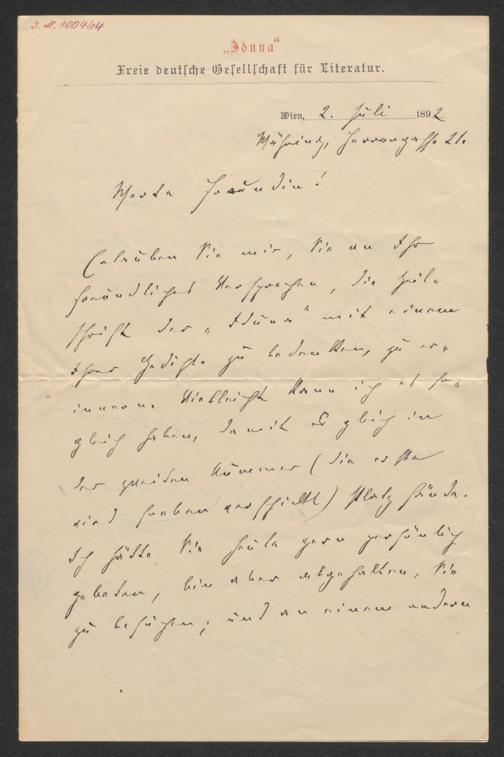 J. N. 100464
„Iduna“
Freie deutsche Gesellschaft für Literatur.
Wien, 2. Juli 1892
Währing, Herrengasse 21.
Werte Freundin!
Erlauben Sie mir, Sie an Ihr
freundliches Versprechen, die Zeit-
schrift der „Iduna“ mit einem
Ihrer Gedichte zu bedenken, zu er-
innern. Vielleicht kann ich es so-
gleich haben, damit es gleich in
der zweiten Nummer (die erste
wird soeben verschickt) Platz fände.
Ich hätte Sie heute gern persönlich
gebeten, bin aber abgehalten, Sie
zu besuchen; und an einem andern